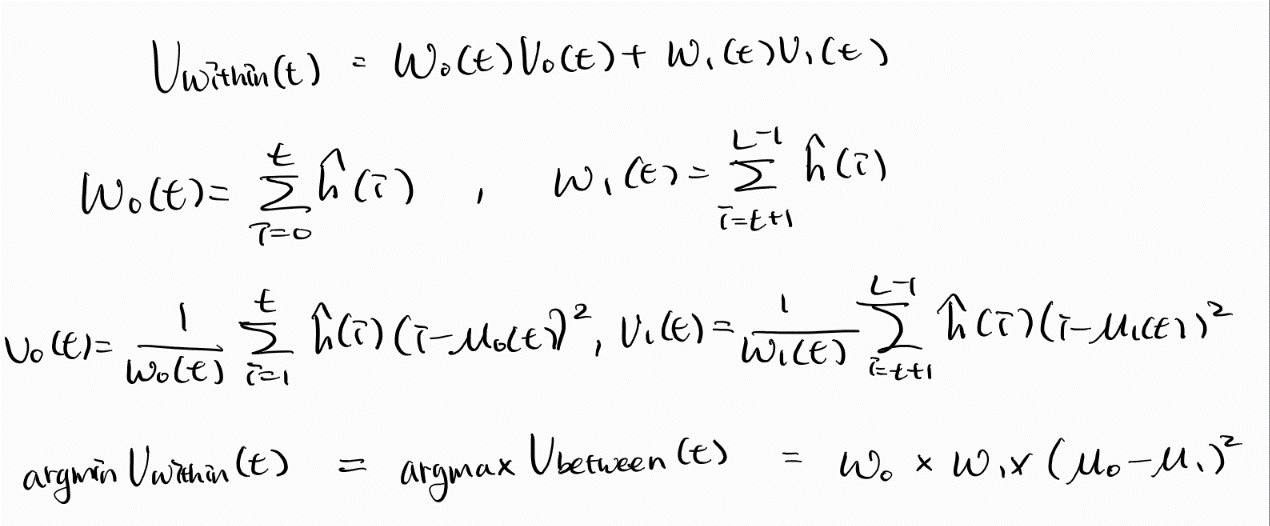 V_within(t) = W₀(t)V₀(t) + W₁(t)V₁(t)
W₀(t) = ∑_{i=0}^{t} ĥ(i) , W₁(t) = ∑_{i=t+1}^{L-1} ĥ(i)
V₀(t) = 1/W₀(t) ∑_{i=1}^{t} ĥ(i)(i-μ₀(t))², V₁(t) = 1/W₁(t) ∑_{i=t+1}^{L-1} ĥ(i)(i-μ₁(t))²
argmin V_within(t) = argmax V_between(t) = W₀ × W₁ × (μ₀-μ₁)²